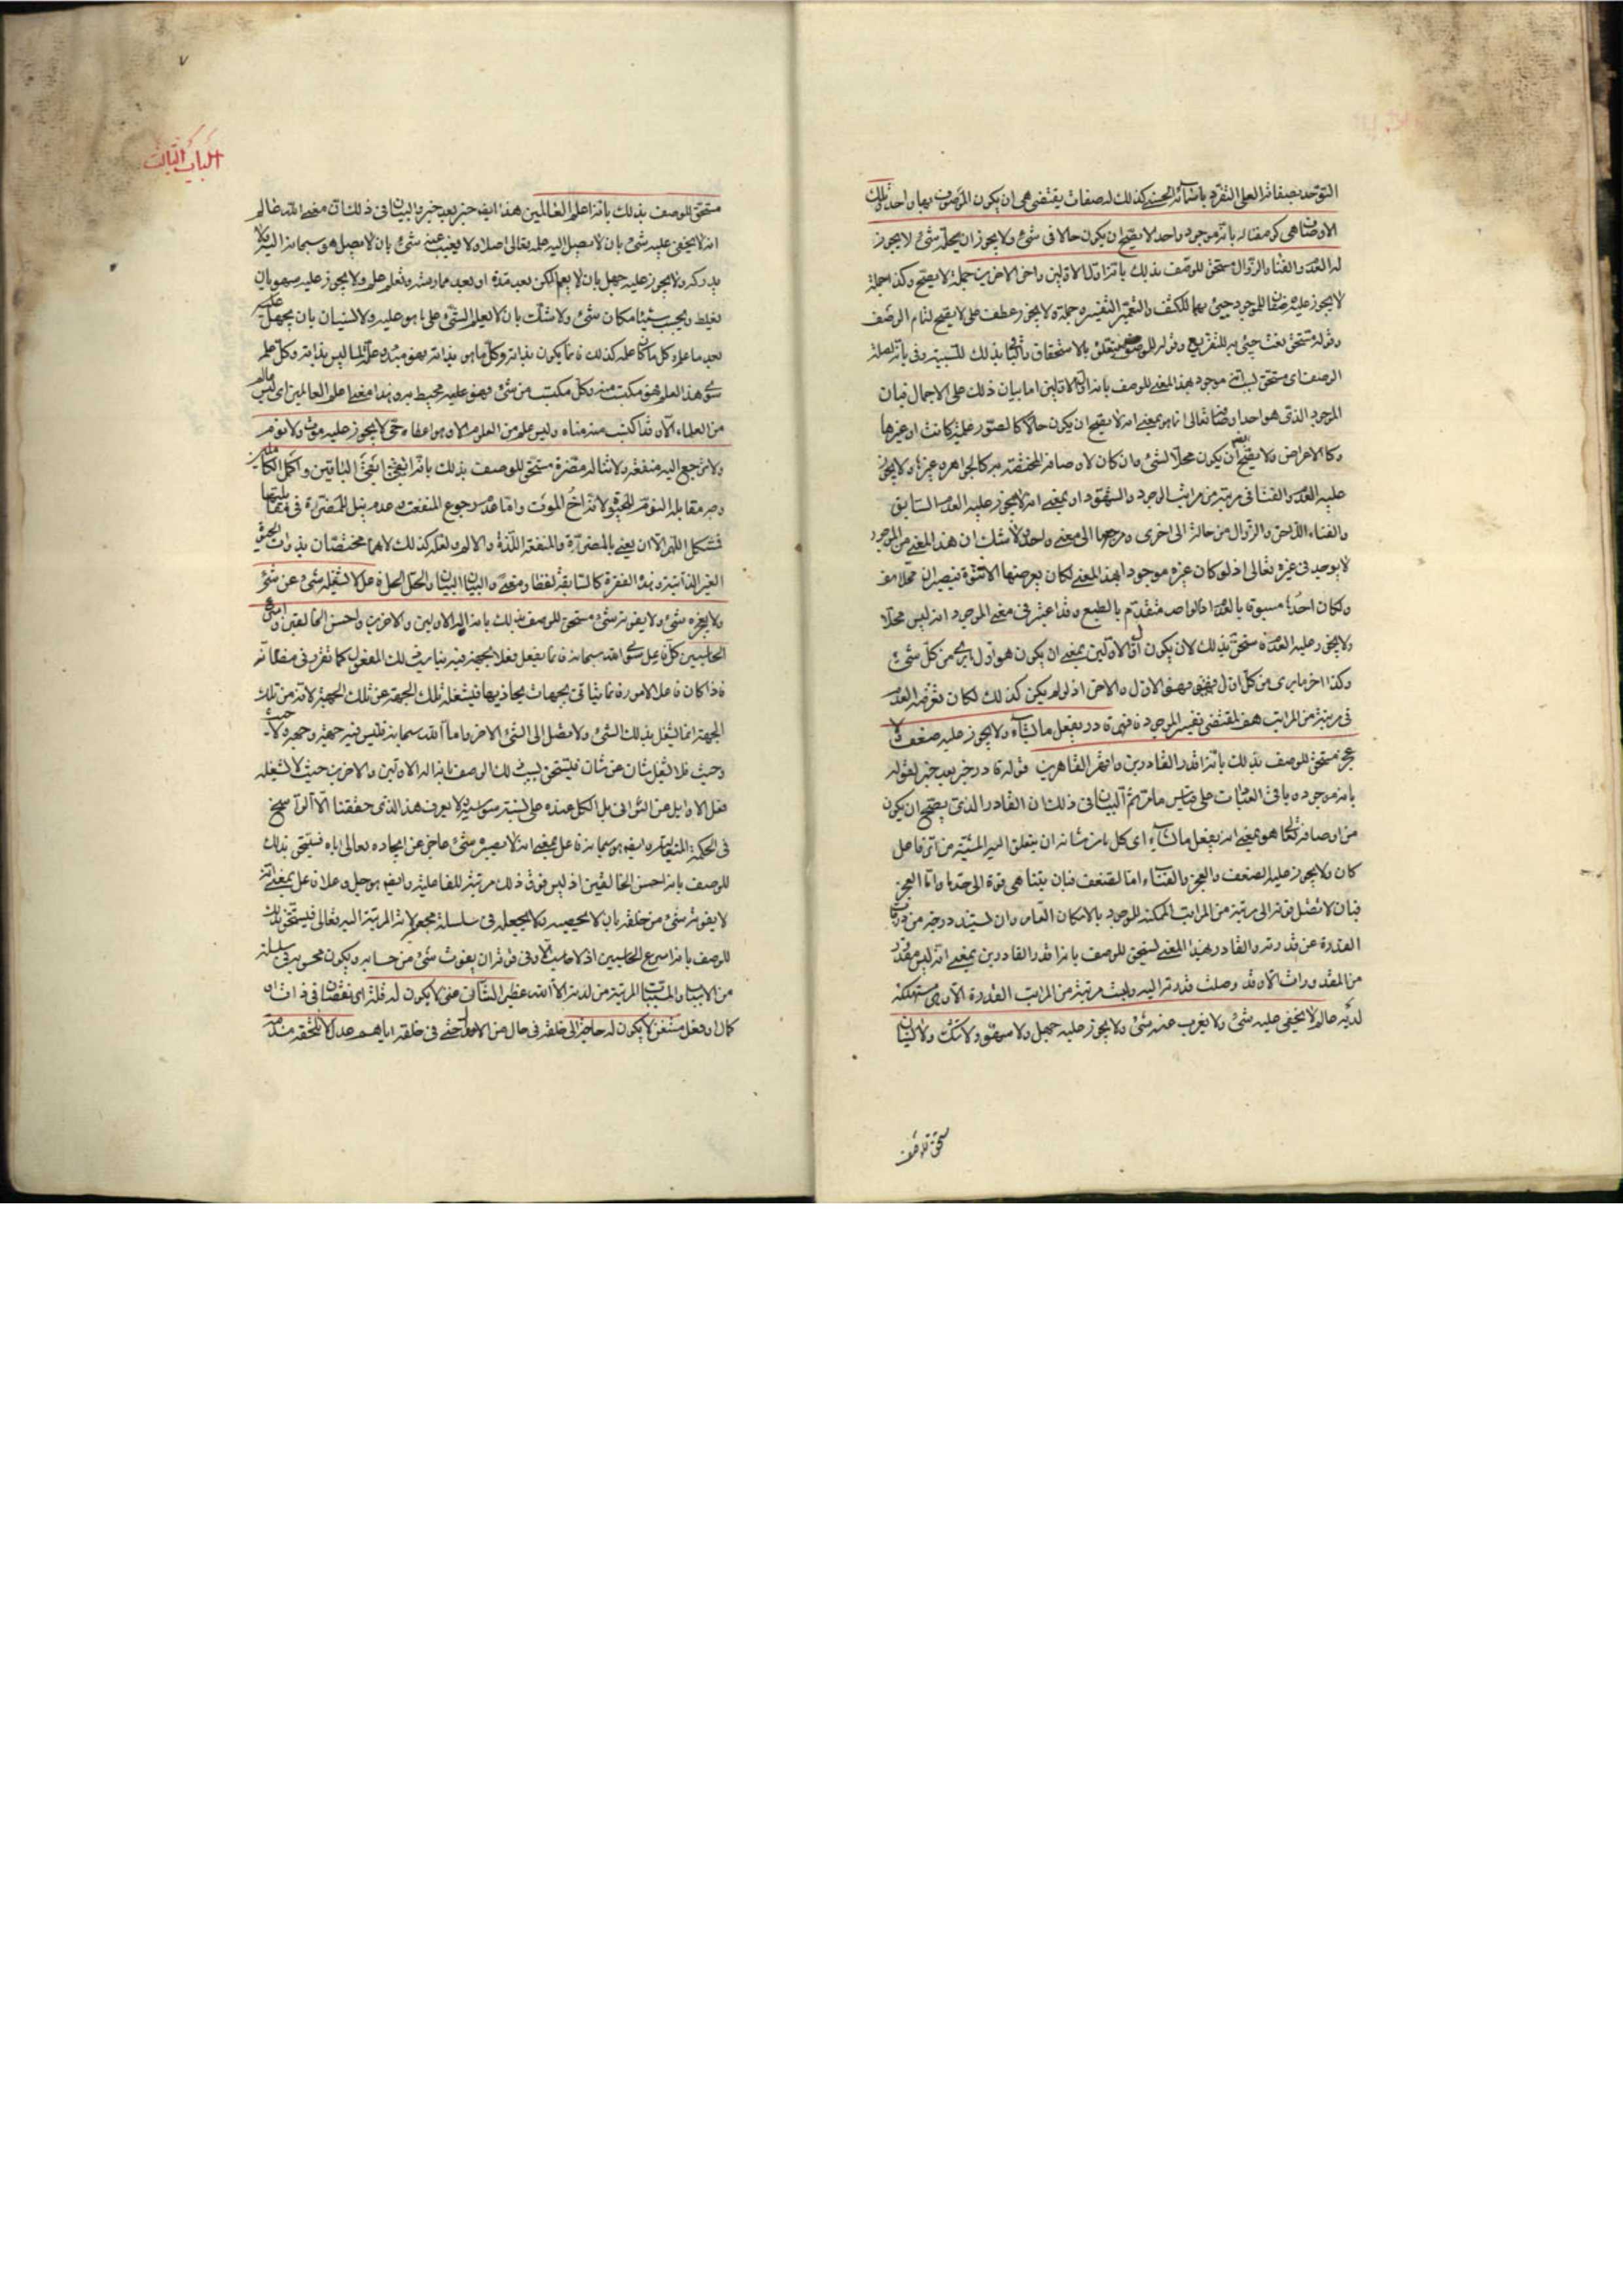 التوحد بصفاته العلى التفرد باسمائه الحسنى كذلك له صفات يقتضى هى ان يكون الموصوف بها واحد تلك
الاوصاف هى كونه مقاله بانه موجود واحد لا يصح ان يكون حالا فى شئ ولا يجوز ان يحله شئ لا يجوز
له العدم والفناء والزوال مستحق للوصف بذلك بانه اول الاولين واخر الاخرين جملة لا يصح وكذا جملة
لا يجوز عليه للموجود جيئ بهما للكشف والتفسير وجملة ولا يجوز عطف على لا يصح لتمام الوصف
وقوله مستحق نعت جيئ به للتفريع وقوله للوصف متعلق بالاستحقاق بذلك للسببية وفى بانه لصلة
الوصف اى مستحق لسبب انه موجود بهذا المعنى للوصف بانه اول الاولين اما بيان ذلك على الاجمال فبان
الموجود الذى هو احد اوصافه تعالى انما هو بمعنى انه لا يصح ان يكون حالا كالصور علمية كانت او غيرها
وكالاعراض ولا يصح ايضا ان يكون محلا لشئ وان كان لاوصافه المختصة به كالجواهر وغيرها ولا يجوز
عليه العدم والفناء فى مرتبة من مراتب الوجود والشهود او بمعنى انه لا يجوز عليه العدم السابق
والفناء اللاحق والزوال من حالة الى اخرى ومرجعها الى معنى واحد ولا شك ان هذا المعنى من الموجود
لا يوجد فى غيره تعالى اذ لو كان غيره موجودا بهذا المعنى لكان يعرضها الاثنوة فيصيران محلا معه
ولكان احدهما مسبوقا بالعدم اذ الواحد متقدم بالطبع وقد اعتبر فى معنى الموجود انه ليس محلا
ولا يجوز عليه العدم مستحق بذلك لان يكون اول الاولين بمعنى ان يكون هو اول من كل شئ
وكذا اخر ما يرى من كل اول فهو الاول والاخر اذ لو لم يكن كذلك لكان تعرضه العدم
فى مرتبة من المراتب هف لمقتضى تفسير الموجود قادر يفعل ما يشاء ولا يجوز عليه ضعف ولا
عجز مستحق للوصف بذلك بانه اقدر القادرين واقهر القاهرين قوله قادر خبر بعد خبر لقوله
بانه موجود وباقى العبارات على قياس ما مر ثم البيان فى ذلك ان القادر الذى يصح ان يكون
من اوصافه تعالى هو بمعنى انه يفعل ما يشاء اى كل ما من شانه ان يتعلق به المشية من اى فاعل
كان ولا يجوز عليه الضعف والعجز والفناء اما الضعف فبان يتناهى قوة الى حد ما واما العجز
فبان لا تصل قوته الى مرتبة من المراتب الممكنة للوجود بالامكان العام وان لشيئ درجة من درجات
القدرة عن قدرته والقادر بهذا المعنى يستحق للوصف بانه اقدر القادرين بمعنى انه ليس مقدور
من المقدورات الا وقد وصلت قدرته اليه وليست مرتبة من المراتب القدرة الا وهى مستهلكة
لديه عالم لا يخفى عليه شئ ولا يعزب عنه شئ ولا يجوز عليه جهل ولا سهو ولا شك ولا نسيان
مستحق للوصف
٧
الباب الثالث
مستحق للوصف بذلك بانه اعلم العالمين هذا ايضا خبر بعد خبر والبيان فى ذلك ان معنى الله عالم
انه لا يخفى عليه شئ بان لا يصل اليه علمه تعالى اصلا ولا يغيب عنه شئ بان لا يصل هو سبحانه اليه ولا
يدركه ولا يجوز عليه جهل بان لا يعلم لكن بعد مدة او بعد ممارسة وتعلم علم ولا يجوز عليه سهو بان
يغلط ويحسب شيئا مكان شئ ولا شك بان لا يعلم الشئ على ما هو عليه ولا لنسيان بان يجهل
بعد ما علم كل ما كان علمه كذلك فانما يكون بذاته وكل ما هو بذاته فهو مبدء وعلة لما ليس بذاته وكل علم
سوى هذا العلم فهو مكتسب منه وكل مكتسب من شئ فهو عليه محيط به وبهذا معنى اعلم العالمين اى ليس عالم
من العلماء الا وقد اكتسب منه مناه وليس علم من العلوم الا وهو اعطاه حى لا يجوز عليه موت ولا نوم
ولا يرجع اليه منفعة ولا تناله مضرة مستحق للوصف بذلك بانه ابقى الباقين واكمل الكاملين
وجه مقابلة النوم للحيوة لانه اخ الموت واما عدم رجوع المنفعة وعدم نيل المضرة فى مقابلتها
فشكل اللهم الا ان يعنى بالمضرة والمنفعة اللذة والالم ولعله كذلك لانهما مختصان بذوات الحيوة
الغير الذاتية وهذه الفقرة كالسابقة لفظا ومعنى والبيان البيان والحل الحل فاعل لا يشغله شئ عن شئ
ولا يعجزه شئ ولا يفوته شئ مستحق للوصف بذلك بانه اله الاولين والاخرين واحسن الخالقين واسرع
الحاسبين كل فاعل سوى الله سبحانه فانما يفعل فعلا بجهة فيه يناسب تلك المفعول كما تقرر فى مقاماته
فاذا كان فاعل الامور فانما يتاتى بجهات يحاذيها فيشغله تلك الجهة عن تلك الجهة لانه من تلك
الجهة انما يشغل بذلك الشئ ولا يصل الى الشئ الاخر واما الله سبحانه فليس فيه جهة وجهة ولا حيث
وحيث فلا يشغل شان عن شان فليستحق بسبب ذلك الوصف بانه اله الاولين والاخرين حيث لا يشغله
فعل الاوايل عن الثوانى بل الكل عنده على نسبة سواسية لا يعرف هذا الذى حققنا الا الراسخ
فى الحكمة المتعالية وايضا هو سبحانه فاعل بمعنى انه لا يعجزه شئ حاجز عن ايجاده تعالى اياه فيستحق بذلك
للوصف بانه احسن الخالقين اذ ليس فوق ذلك مرتبة للفاعلية وايضا هو جل وعلا فاعل بمعنى انه
لا يفوته شئ من خلقه بان لا يحصيه ولا يجعله فى سلسلة مجعولاته المرتبة اليه تعالى فيستحق بذلك
للوصف بانه اسرع الحاسبين اذ لا حاسب الا وفى قوته ان يفوت شئ من حسابه ويكون محسوب فى سلسلة
من الاسباب والمسببات المرتبة من لدنه الا الله عظيم الشان غنى لا يكون له قلة اى نقصان فى ذات او
كمال او فعل مستغن لا يكون له حاجة الى خلقه فى حال من الاحوال حتى فى خلقه اياهم عدل لا تلحقه مذمة